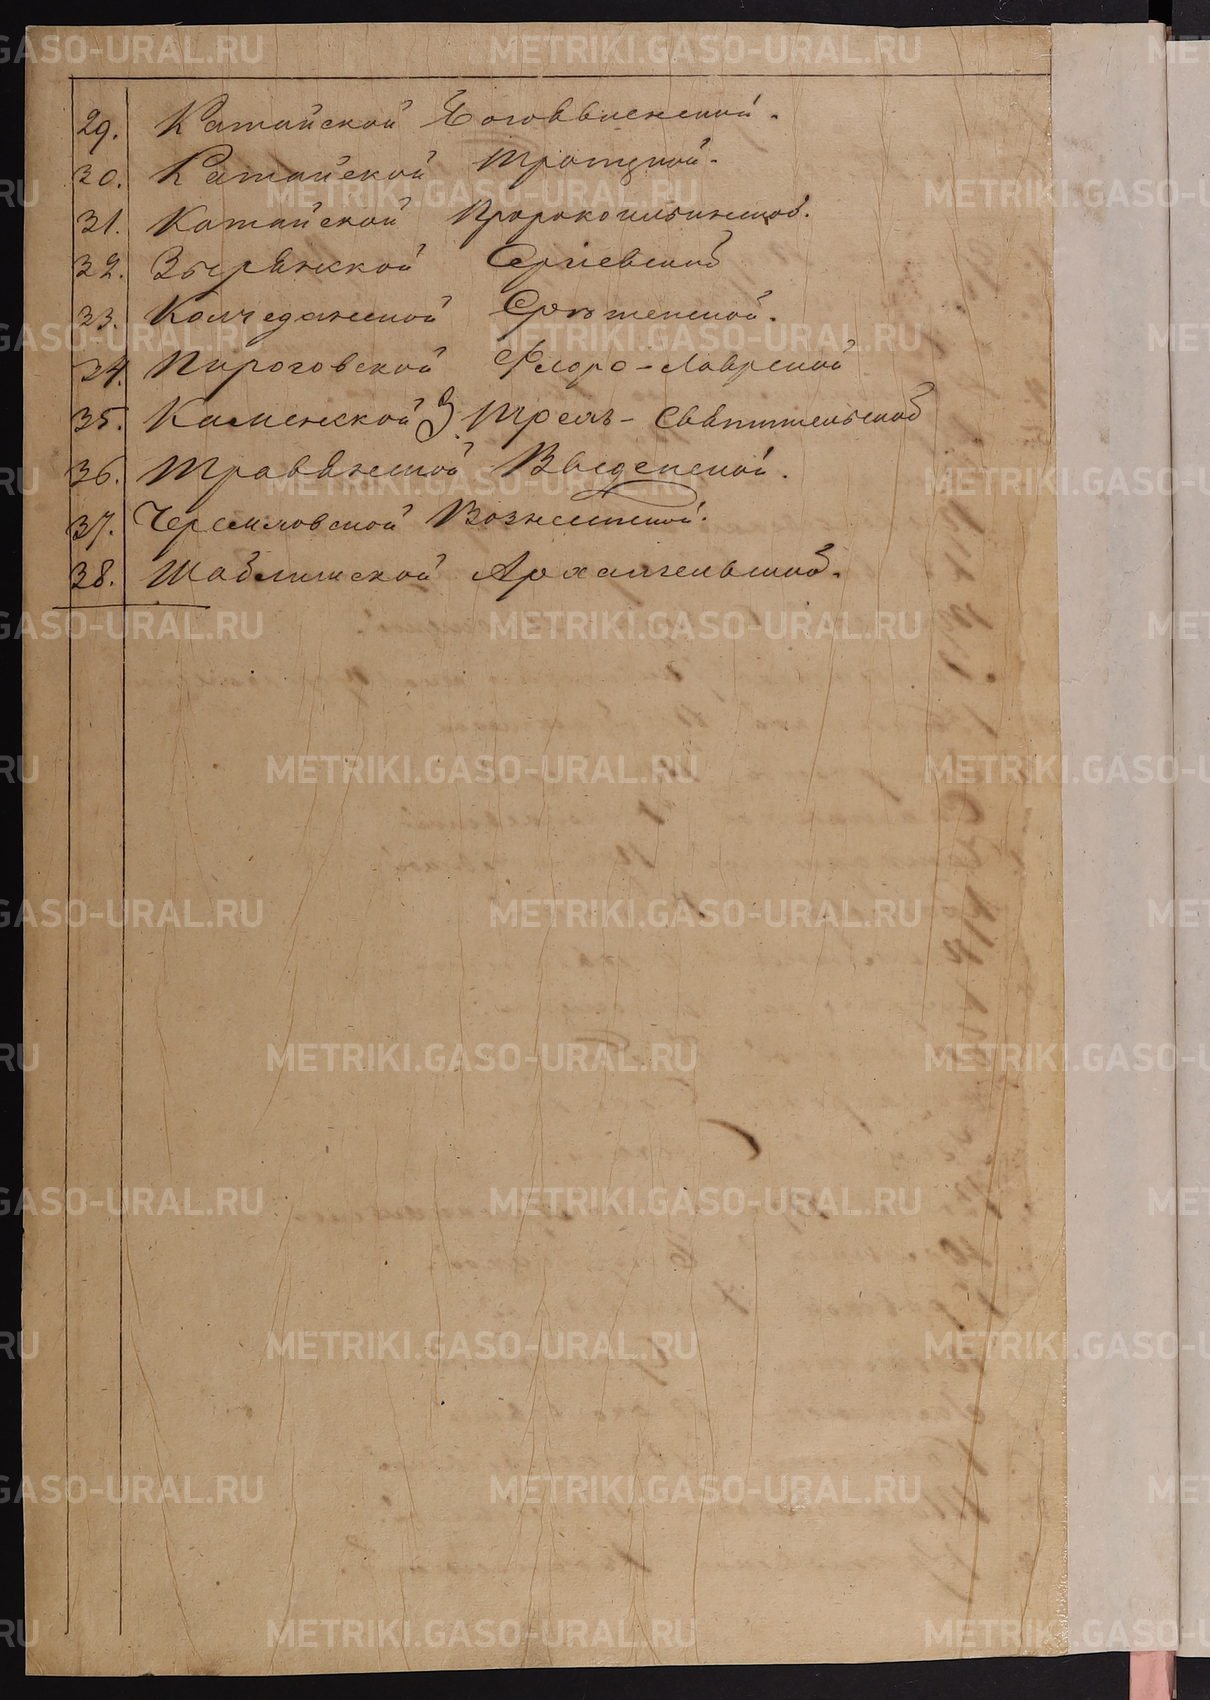 29. Катайской Богоявленской.
30. Катайской Троицкой.
31. Катайской Пророкоильинской.
32. Зырянской Сергиевской
33. Колчеданской Срѣтенской.
34. Пироговской Флоро-Лаврской
35. Каменской З. Трехъ-Святительской
36. Травянской Введенской.
37. Черемховской Вознесенской.
38. Шаблишской Архангельской.
METRIKI.GASO-URAL.RU